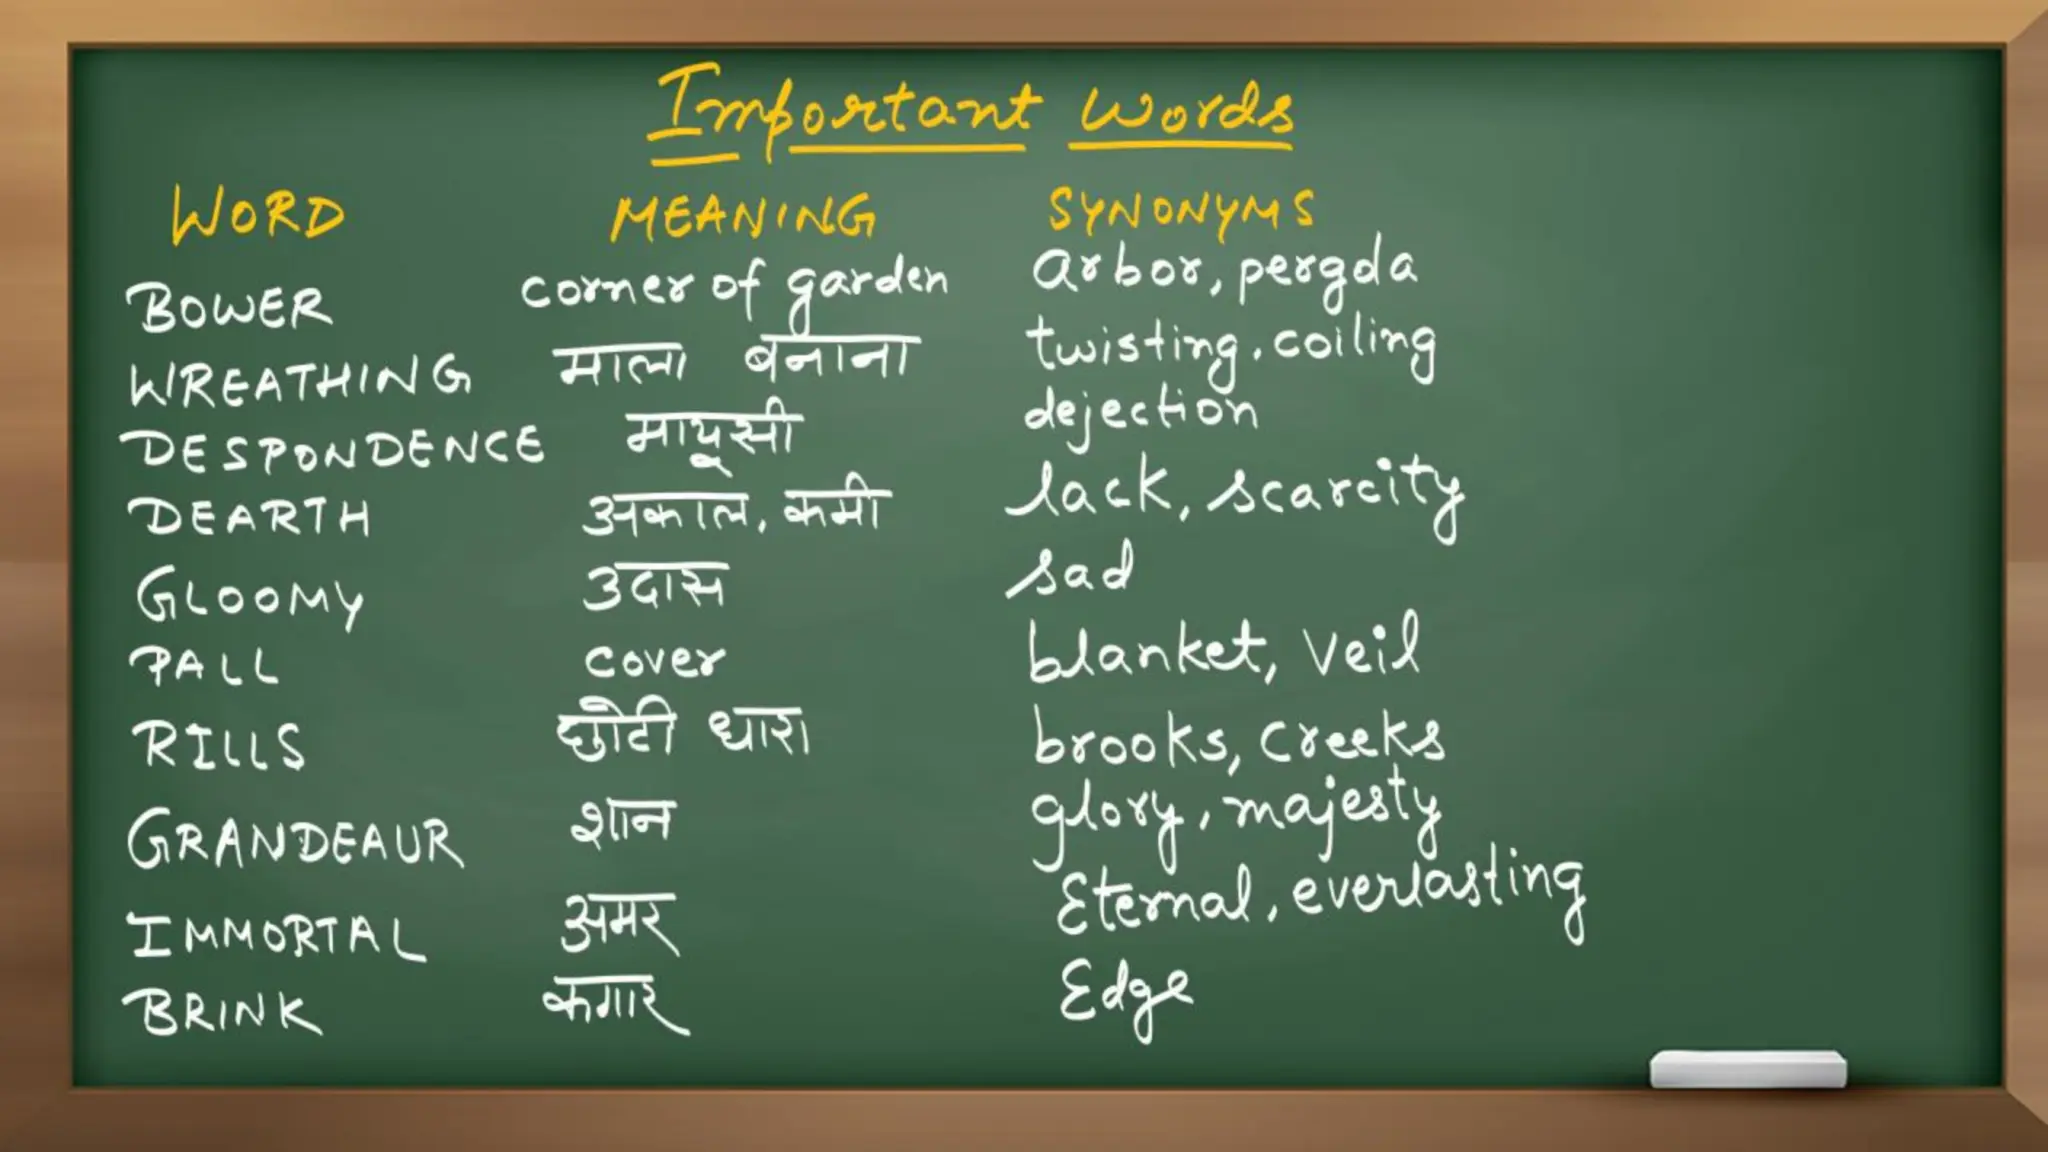 Important Words
WORD MEANING SYNONYMS
BOWER corner of garden arbor, pergola
WREATHING माला बनाना twisting, coiling
DESPONDENCE मायूसी dejection
DEARTH अकाल, कमी lack, scarcity
GLOOMY उदास sad
PALL cover blanket, veil
RILLS छोटी धारा brooks, creeks
GRANDEAUR शान glory, majesty
IMMORTAL अमर Eternal, everlasting
BRINK कगार Edge